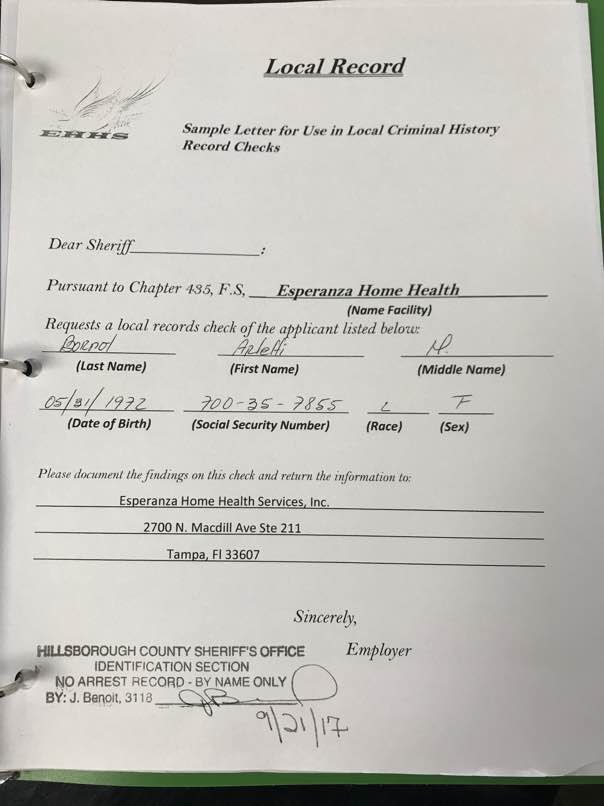 Local Record
EHHS
Sample Letter for Use in Local Criminal History
Record Checks
Dear Sheriff :
Pursuant to Chapter 435, F.S, Esperanza Home Health
(Name Facility)
Requests a local records check of the applicant listed below:
M.
(Last Name) (First Name) (Middle Name)
05/31/1972 700-35-7855 L F
(Date of Birth) (Social Security Number) (Race) (Sex)
Please document the findings on this check and return the information to:
Esperanza Home Health Services, Inc.
2700 N. Macdill Ave Ste 211
Tampa, Fl 33607
Sincerely,
Employer
HILLSBOROUGH COUNTY SHERIFF'S OFFICE
IDENTIFICATION SECTION
NO ARREST RECORD - BY NAME ONLY
BY: J. Benoit, 3118
9/21/17